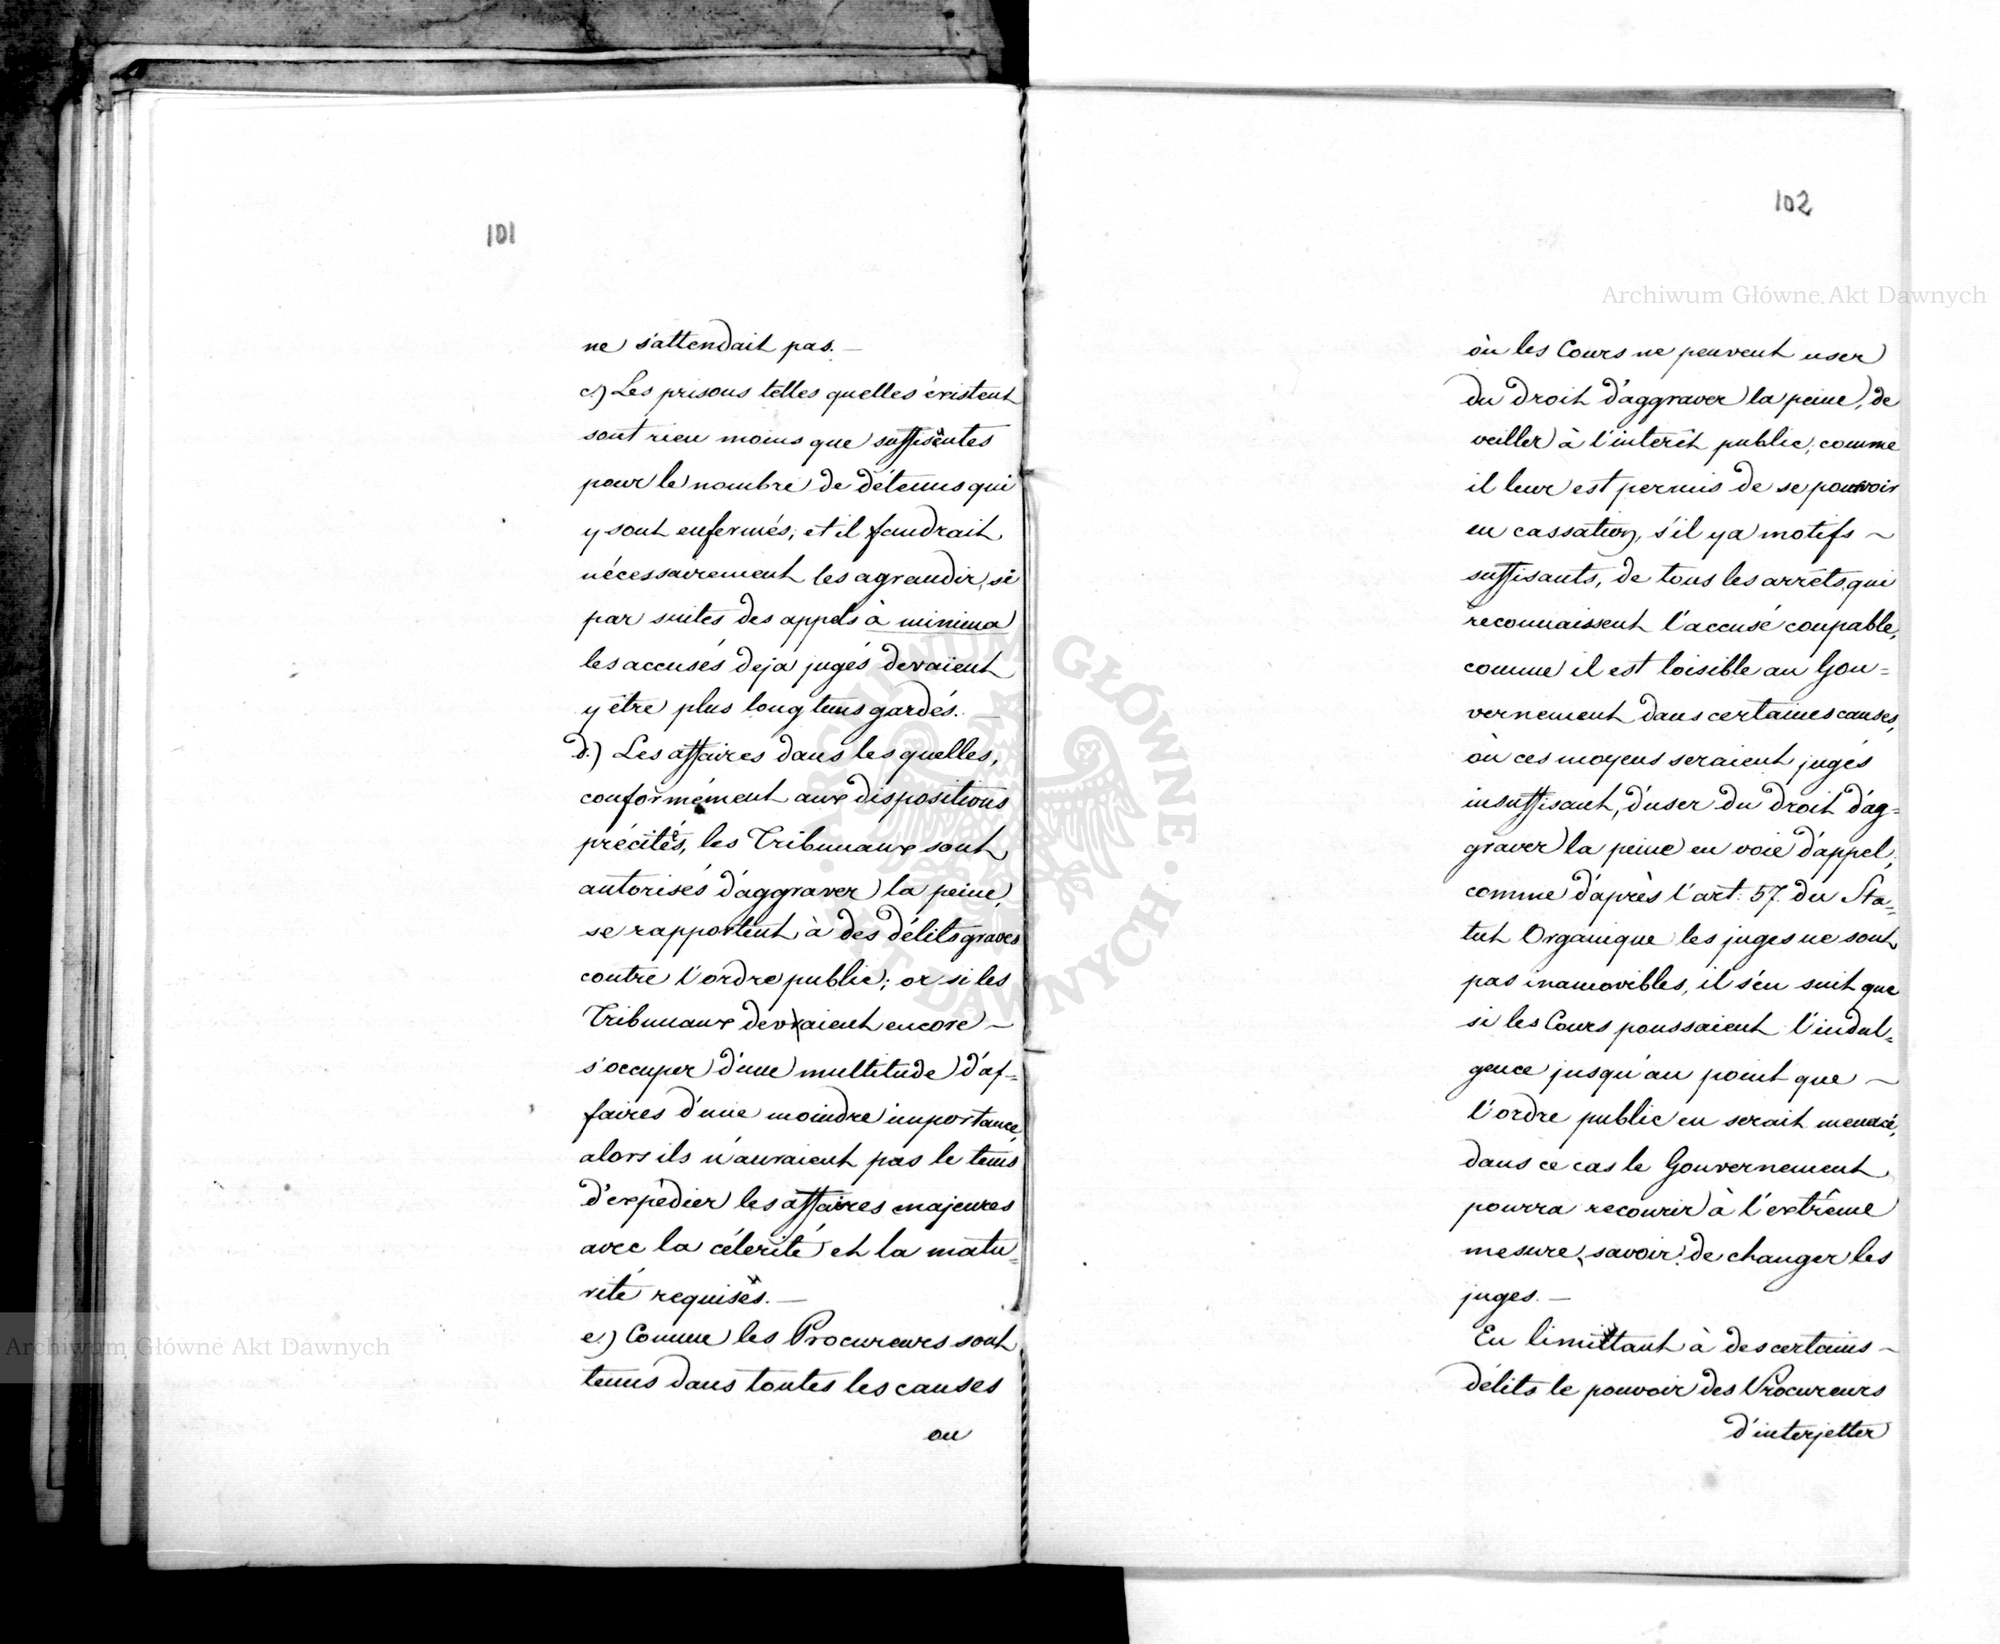 101
ne s'attendait pas. —
c.) Les prisons telles quelles éxistent
sont rien moins que suffisentes
pour le nombre de détenus qui
y sont enfermés; et il faudrait
nécessairement les agrandir, si
par suites des appels à minima
les accusés deja jugés devaient
y être plus longtems gardés. —
d.) Les affaires dans les quelles,
conformément aux dispositions
précités, les Tribunaux sont
autorisés d'aggraver la peine,
se rapportent à des délits graves
contre l'ordre public; or si les
Tribunaux devraient encore —
s'occuper d'une multitude d'af=
faires d'une moindre importance,
alors ils n'auraient pas le tems
d'expédier les affaires majeures
avec la célerité et la matu=
rité requises. —
e.) Comme les Procureurs sont
tenus dans toutes les causes
ou
102
où les Cours ne peuvent user
du droit d'aggraver la peine, de
veiller à l'interêt public, comme
il leur est permis de se pourvoir
en cassation, s'il y a motifs ~
suffisants, de tous les arrêts, qui
reconnaissent l'accusé coupable,
comme il est loisible au Gou=
vernement dans certaines causes,
où ces moyens seraient jugés
insuffisant, d'user du droit d'ag=
graver la peine en voie d'appel,
comme d'après l'art: 57. du Sta=
tut Organique les juges ne sont
pas inamovibles, il s'en suit que
si les Cours poussaient l'indul=
gence jusqu'au point que ~
l'ordre public en serait menacé,
dans ce cas le Gouvernement
pourra recourir à l'extrême
mesure, savoir: de changer les
juges. —
En limittant à des certains ~
délits le pouvoir des Procureurs
d'interjetter
Archiwum Główne Akt Dawnych
Archiwum Główne Akt Dawnych
ARCHIWUM GŁÓWNE AKT DAWNYCH